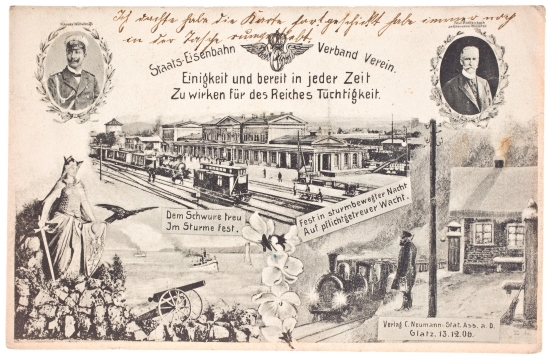 Ich dachte habe die Karte fortgeschickt habe immer noch
in der Tasche
Staats-Eisenbahn Verband Verein.
Einigkeit und bereit in jeder Zeit
Zu wirken für des Reiches Tüchtigkeit.
Dem Schwure treu
Im Sturme fest.
Fest in sturmbewegter Nacht
Auf pflichtgetreuer Wacht.
Verlag C. Neumann-Stat. Ass. a. D.
Glatz, 13.12.06.